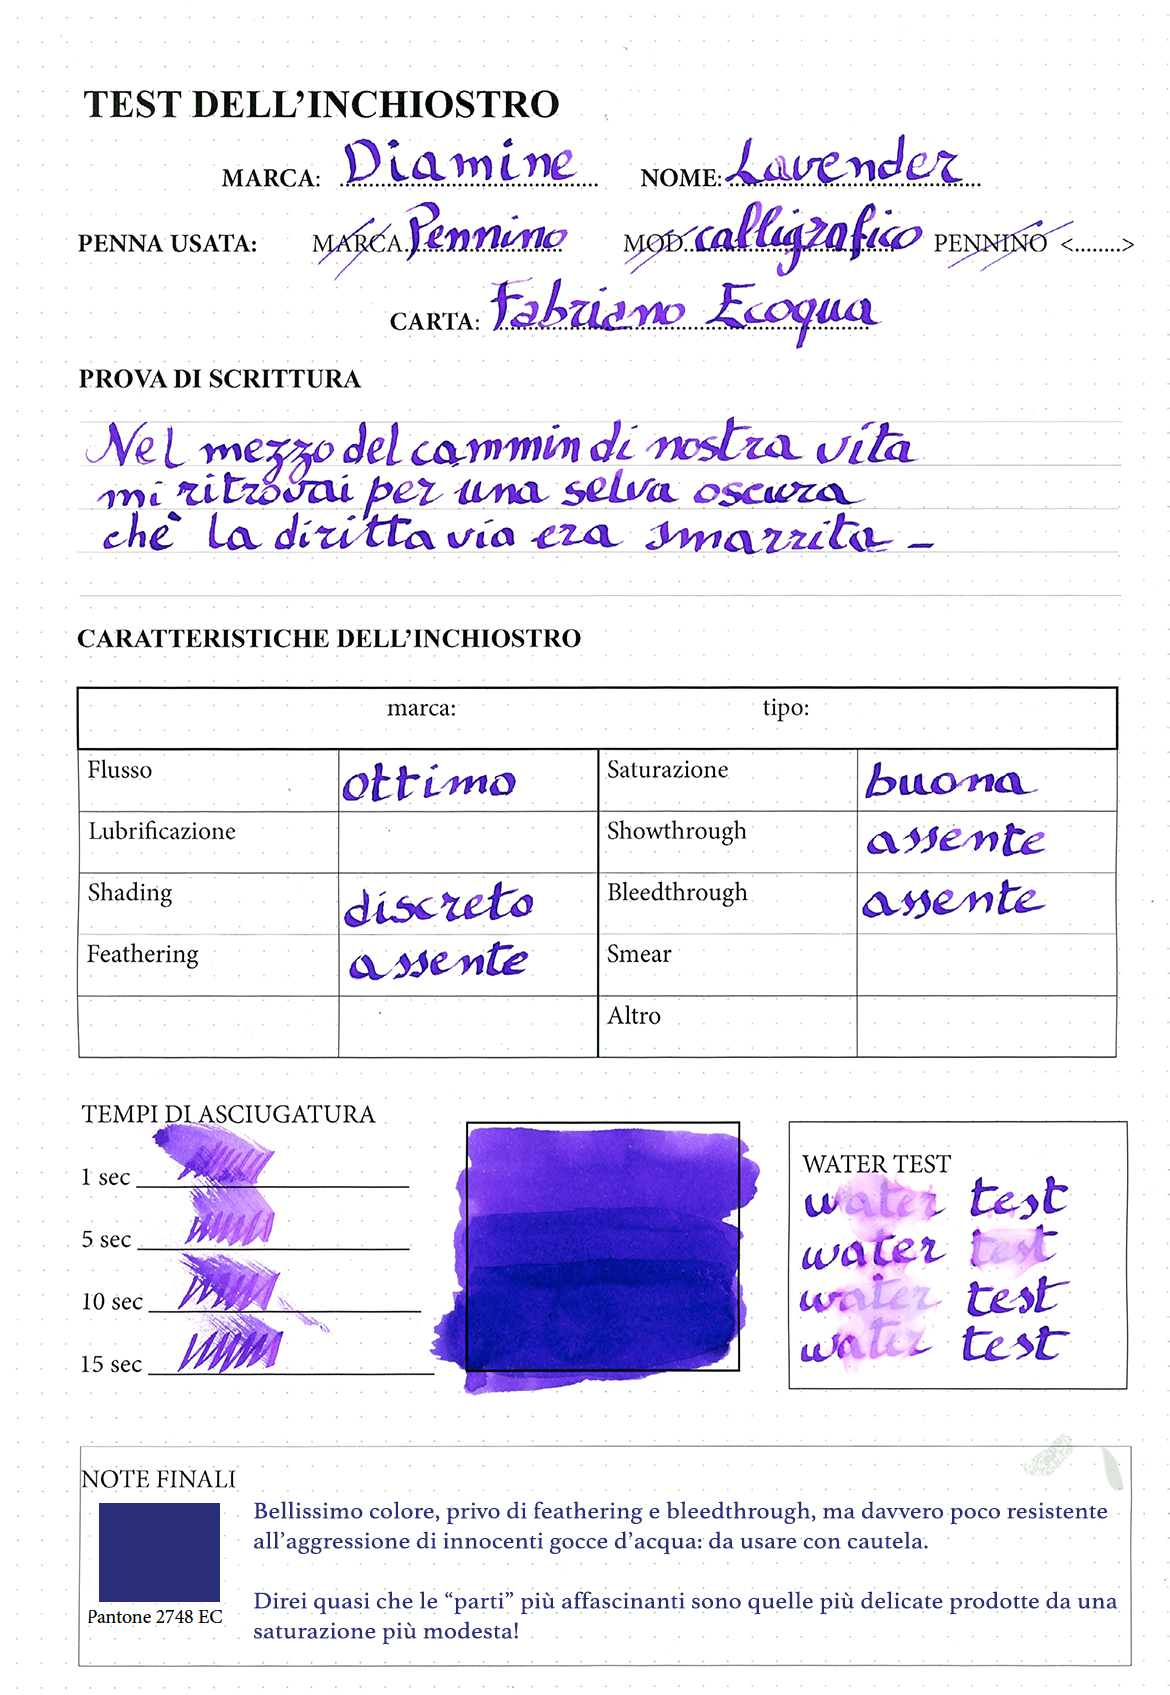 TEST DELL’INCHIOSTRO
MARCA: Diamine NOME: Lavender
PENNA USATA: MARCA Pennino MOD. calligrafico PENNINO <........>
CARTA: Fabriano Ecoqua
PROVA DI SCRITTURA
Nel mezzo del cammin di nostra vita
mi ritrovai per una selva oscura
chè la diritta via era smarrita –
CARATTERISTICHE DELL’INCHIOSTRO
marca: tipo:
Flusso ottimo Saturazione buona
Lubrificazione Showthrough assente
Shading discreto Bleedthrough assente
Feathering assente Smear
Altro
TEMPI DI ASCIUGATURA
1 sec
5 sec
10 sec
15 sec
WATER TEST
water test
water test
water test
water test
NOTE FINALI
Bellissimo colore, privo di feathering e bleedthrough, ma davvero poco resistente
all’aggressione di innocenti gocce d’acqua: da usare con cautela.
Direi quasi che le “parti” più affascinanti sono quelle più delicate prodotte da una
saturazione più modesta!
Pantone 2748 EC